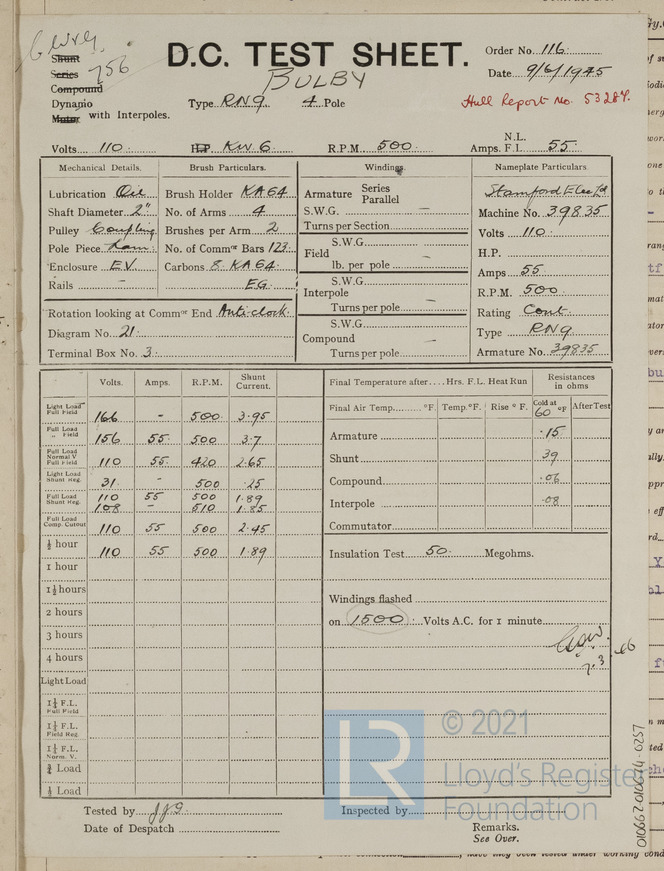 D.C. TEST SHEET.
BULBY
Order No. 116
Date 9/6/1945
Hull Report No. 53284.
Shunt
Series 756
Compound
Dynamo
Motor with Interpoles.
Type RN9 4 Pole
Volts 110 H.P. KW 6 R.P.M. 500 N.L.
Amps. F.L. 55
Mechanical Details.
Lubrication Oil
Shaft Diameter 2"
Pulley Coupling
Pole Piece Lam
Enclosure EV
Rails -
Brush Particulars.
Brush Holder KA64
No. of Arms 4
Brushes per Arm 2
No. of Commr Bars 123
Carbons 8 KA64
EG
Rotation looking at Commr End Anti-clock
Diagram No. 21
Terminal Box No. 3
Windings.
Armature Series
Parallel
S.W.G. -
Turns per Section
Field S.W.G. -
lb. per pole
Interpole S.W.G.
Turns per pole -
Compound S.W.G.
Turns per pole -
Nameplate Particulars.
Stamford Elec Ld
Machine No. 39835
Volts 110
H.P.
Amps 55
R.P.M. 500
Rating Cont
Type RN9
Armature No. 39835
Volts. Amps. R.P.M. Shunt Current.
Light Load Full Field 166 - 500 3.95
Full Load " Field 156 55 500 3.7
Full Load Normal V Full Field 110 55 420 2.65
Light Load Shunt Reg. 31 - 500 .25
Full Load Shunt Reg. 110 55 500 1.89
108 - 510 1.85
Full Load Comp. Cutout 110 55 500 2.45
½ hour 110 55 500 1.89
1 hour
1½ hours
2 hours
3 hours
4 hours
Light Load
1¼ F.L. Full Field
1¼ F.L. Field Reg.
1¼ F.L. Norm. V.
¾ Load
½ Load
Final Temperature after....Hrs. F.L. Heat Run Resistances in ohms
Final Air Temp. °F. Temp. °F. Rise °F. Cold at 60 °F After Test
Armature .15
Shunt 39
Compound .06
Interpole .08
Commutator
Insulation Test 50 Megohms.
Windings flashed
on 1500 Volts A.C. for 1 minute
© 2021
Lloyd's Register
Foundation
LR
Tested by
Inspected by
Date of Despatch
Remarks.
See Over.
010662-010674-0257